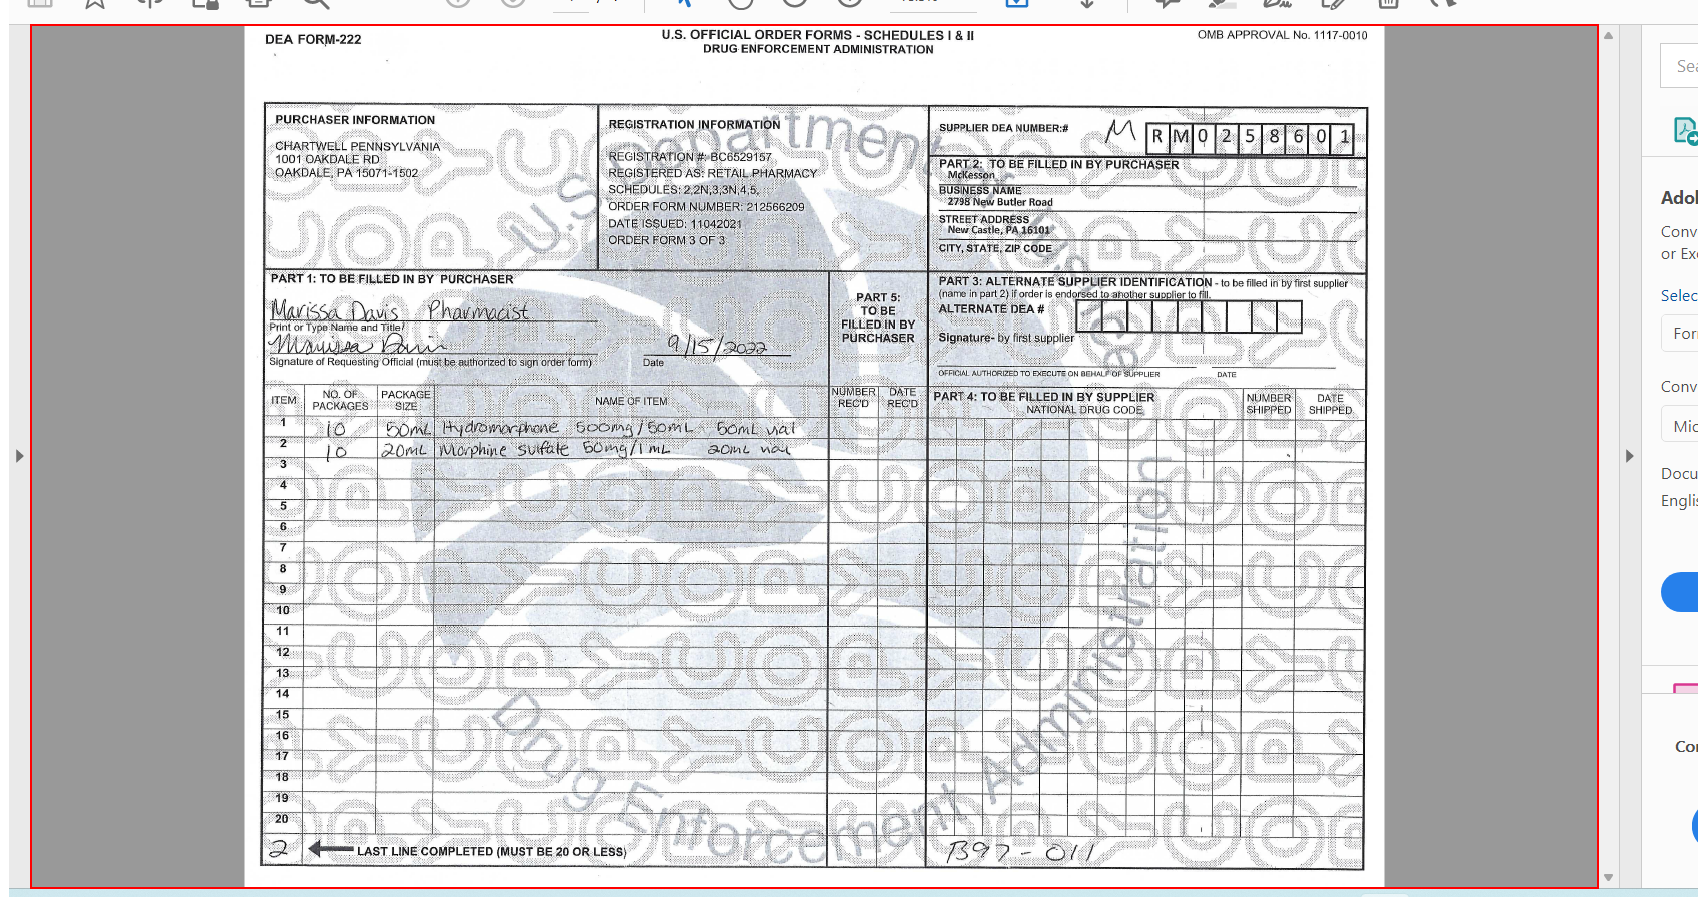 DEA FORM-222
U.S. OFFICIAL ORDER FORMS - SCHEDULES I & II
DRUG ENFORCEMENT ADMINISTRATION
OMB APPROVAL No. 1117-0010
PURCHASER INFORMATION
CHARTWELL PENNSYLVANIA
1001 OAKDALE RD
OAKDALE, PA 15071-1502
REGISTRATION INFORMATION
REGISTRATION #: BC6529157
REGISTERED AS: RETAIL PHARMACY
SCHEDULES: 2,2N,3,3N,4,5,
ORDER FORM NUMBER: 212566209
DATE ISSUED: 11042021
ORDER FORM 3 OF 3
SUPPLIER DEA NUMBER:# M RM0258601
PART 2: TO BE FILLED IN BY PURCHASER
McKesson
BUSINESS NAME
2798 New Butler Road
STREET ADDRESS
New Castle, PA 16101
CITY, STATE, ZIP CODE
PART 1: TO BE FILLED IN BY PURCHASER
Marissa Davis Pharmacist
Print or Type Name and Title
Marissa Davis
9/15/2022
Signature of Requesting Official (must be authorized to sign order form)
Date
PART 5:
TO BE
FILLED IN BY
PURCHASER
PART 3: ALTERNATE SUPPLIER IDENTIFICATION - to be filled in by first supplier
(name in part 2) if order is endorsed to another supplier to fill.
ALTERNATE DEA #
Signature- by first supplier
OFFICIAL AUTHORIZED TO EXECUTE ON BEHALF OF SUPPLIER
DATE
ITEM
NO. OF
PACKAGES
PACKAGE
SIZE
NAME OF ITEM
NUMBER
REC'D
DATE
REC'D
PART 4: TO BE FILLED IN BY SUPPLIER
NATIONAL DRUG CODE
NUMBER
SHIPPED
DATE
SHIPPED
1 10 50mL Hydromorphone 500mg/50mL 50mL vial
2 10 20mL Morphine sulfate 50mg/1mL 20mL vial
3
4
5
6
7
8
9
10
11
12
13
14
15
16
17
18
19
20
2 LAST LINE COMPLETED (MUST BE 20 OR LESS)
B97-011
U.S. Department of Justice
Drug Enforcement Administration
Sea
Adob
Conv
or Exc
Selec
Form
Conv
Mic
Docu
Englis
Co